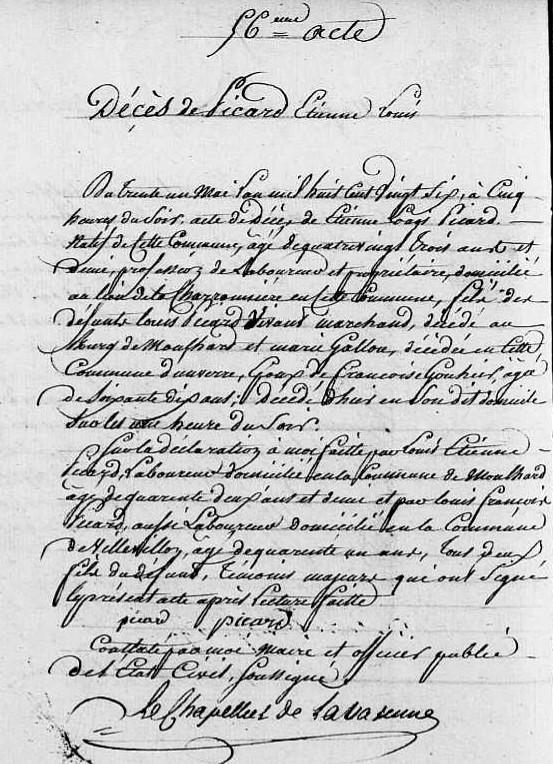 56 eme = acte
Décès de Picard Etienne Louis
Du trente un Mai L'an mil huit cent Vingt Six, à Cinq
heures du Soir. acte de Décès de Etienne Louis Picard
Natif de Cette Commune, âgé de quatrevingt Trois ans et
Demi, profession de Laboureur et propriétaire, domicilié
au lieu de la Charronnière en Cette Commune, fils des
défunts Louis Picard Vivant marchand, décédé au
bourg de Moulhard et marie Gallou, décédée en Cette
Commune d'unverre, Epoux de Françoise Gouhier, agée
de Soixante dix ans; décédé d'huis en Son dit domicile
Sur les une heure du Soir.
Sur la déclaration à moi faitte par Louis Etienne
Picard, Laboureur domicilié en la Commune de Moulhard
âgé de quarente deux ans et demie et par Louis François
Picard, aussi Laboureur domicilié en la Commune
de Villevillon, âgé de quarente un ans, Tous deux
fils du defunt, Témoins majeurs qui ont Signé
le présent acte après Lecture faitte
picard picard
Constaté par moi Maire et officier public
de l'Etat Civil, Soussigné
Le Chapellier de La Varenne